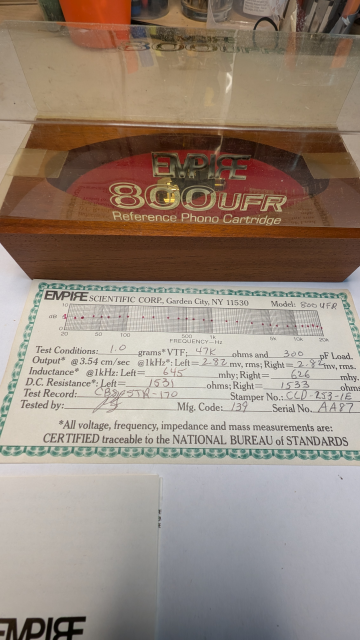 EMPIRE
800UFR
Reference Phono Cartridge
EMPIRE SCIENTIFIC CORP., Garden City, NY 11530 Model: 800 UFR
dB
20 50 100 500 1k 5k 10k 20k
FREQUENCY—Hz
Test Conditions: 1.0 grams*VTF; 47K ohms and 300 pF Load.
Output* @3.54 cm/sec @1kHz: Left = 2.82 mv, rms; Right = mv, rms.
Inductance* @1kHz: Left = 645 mhy; Right = 626 mhy.
D.C. Resistance*: Left = 1531 ohms; Right = 1533 ohms.
Test Record: CBS STR-170 Stamper No.: CCD-253-1E
Tested by: Mfg. Code: 139 Serial No. AA87
*All voltage, frequency, impedance and mass measurements are:
CERTIFIED traceable to the NATIONAL BUREAU of STANDARDS
EMPIRE